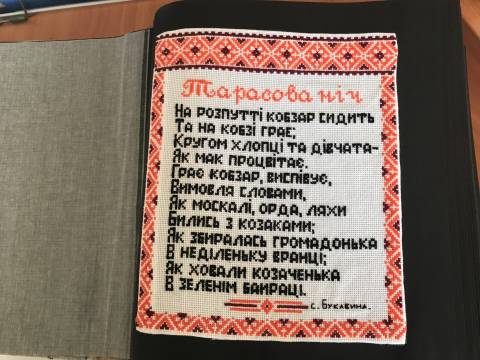 Тарасова ніч
На розпутті кобзар сидить
Та на кобзі грає;
Кругом хлопці та дівчата-
Як мак процвітає.
Грає кобзар, виспівує,
Вимовля словами,
Як москалі, орда, ляхи
Бились з козаками;
Як збиралась громадонька
В неділеньку вранці;
Як ховали козаченька
В зеленім байраці.
с. Букавина.